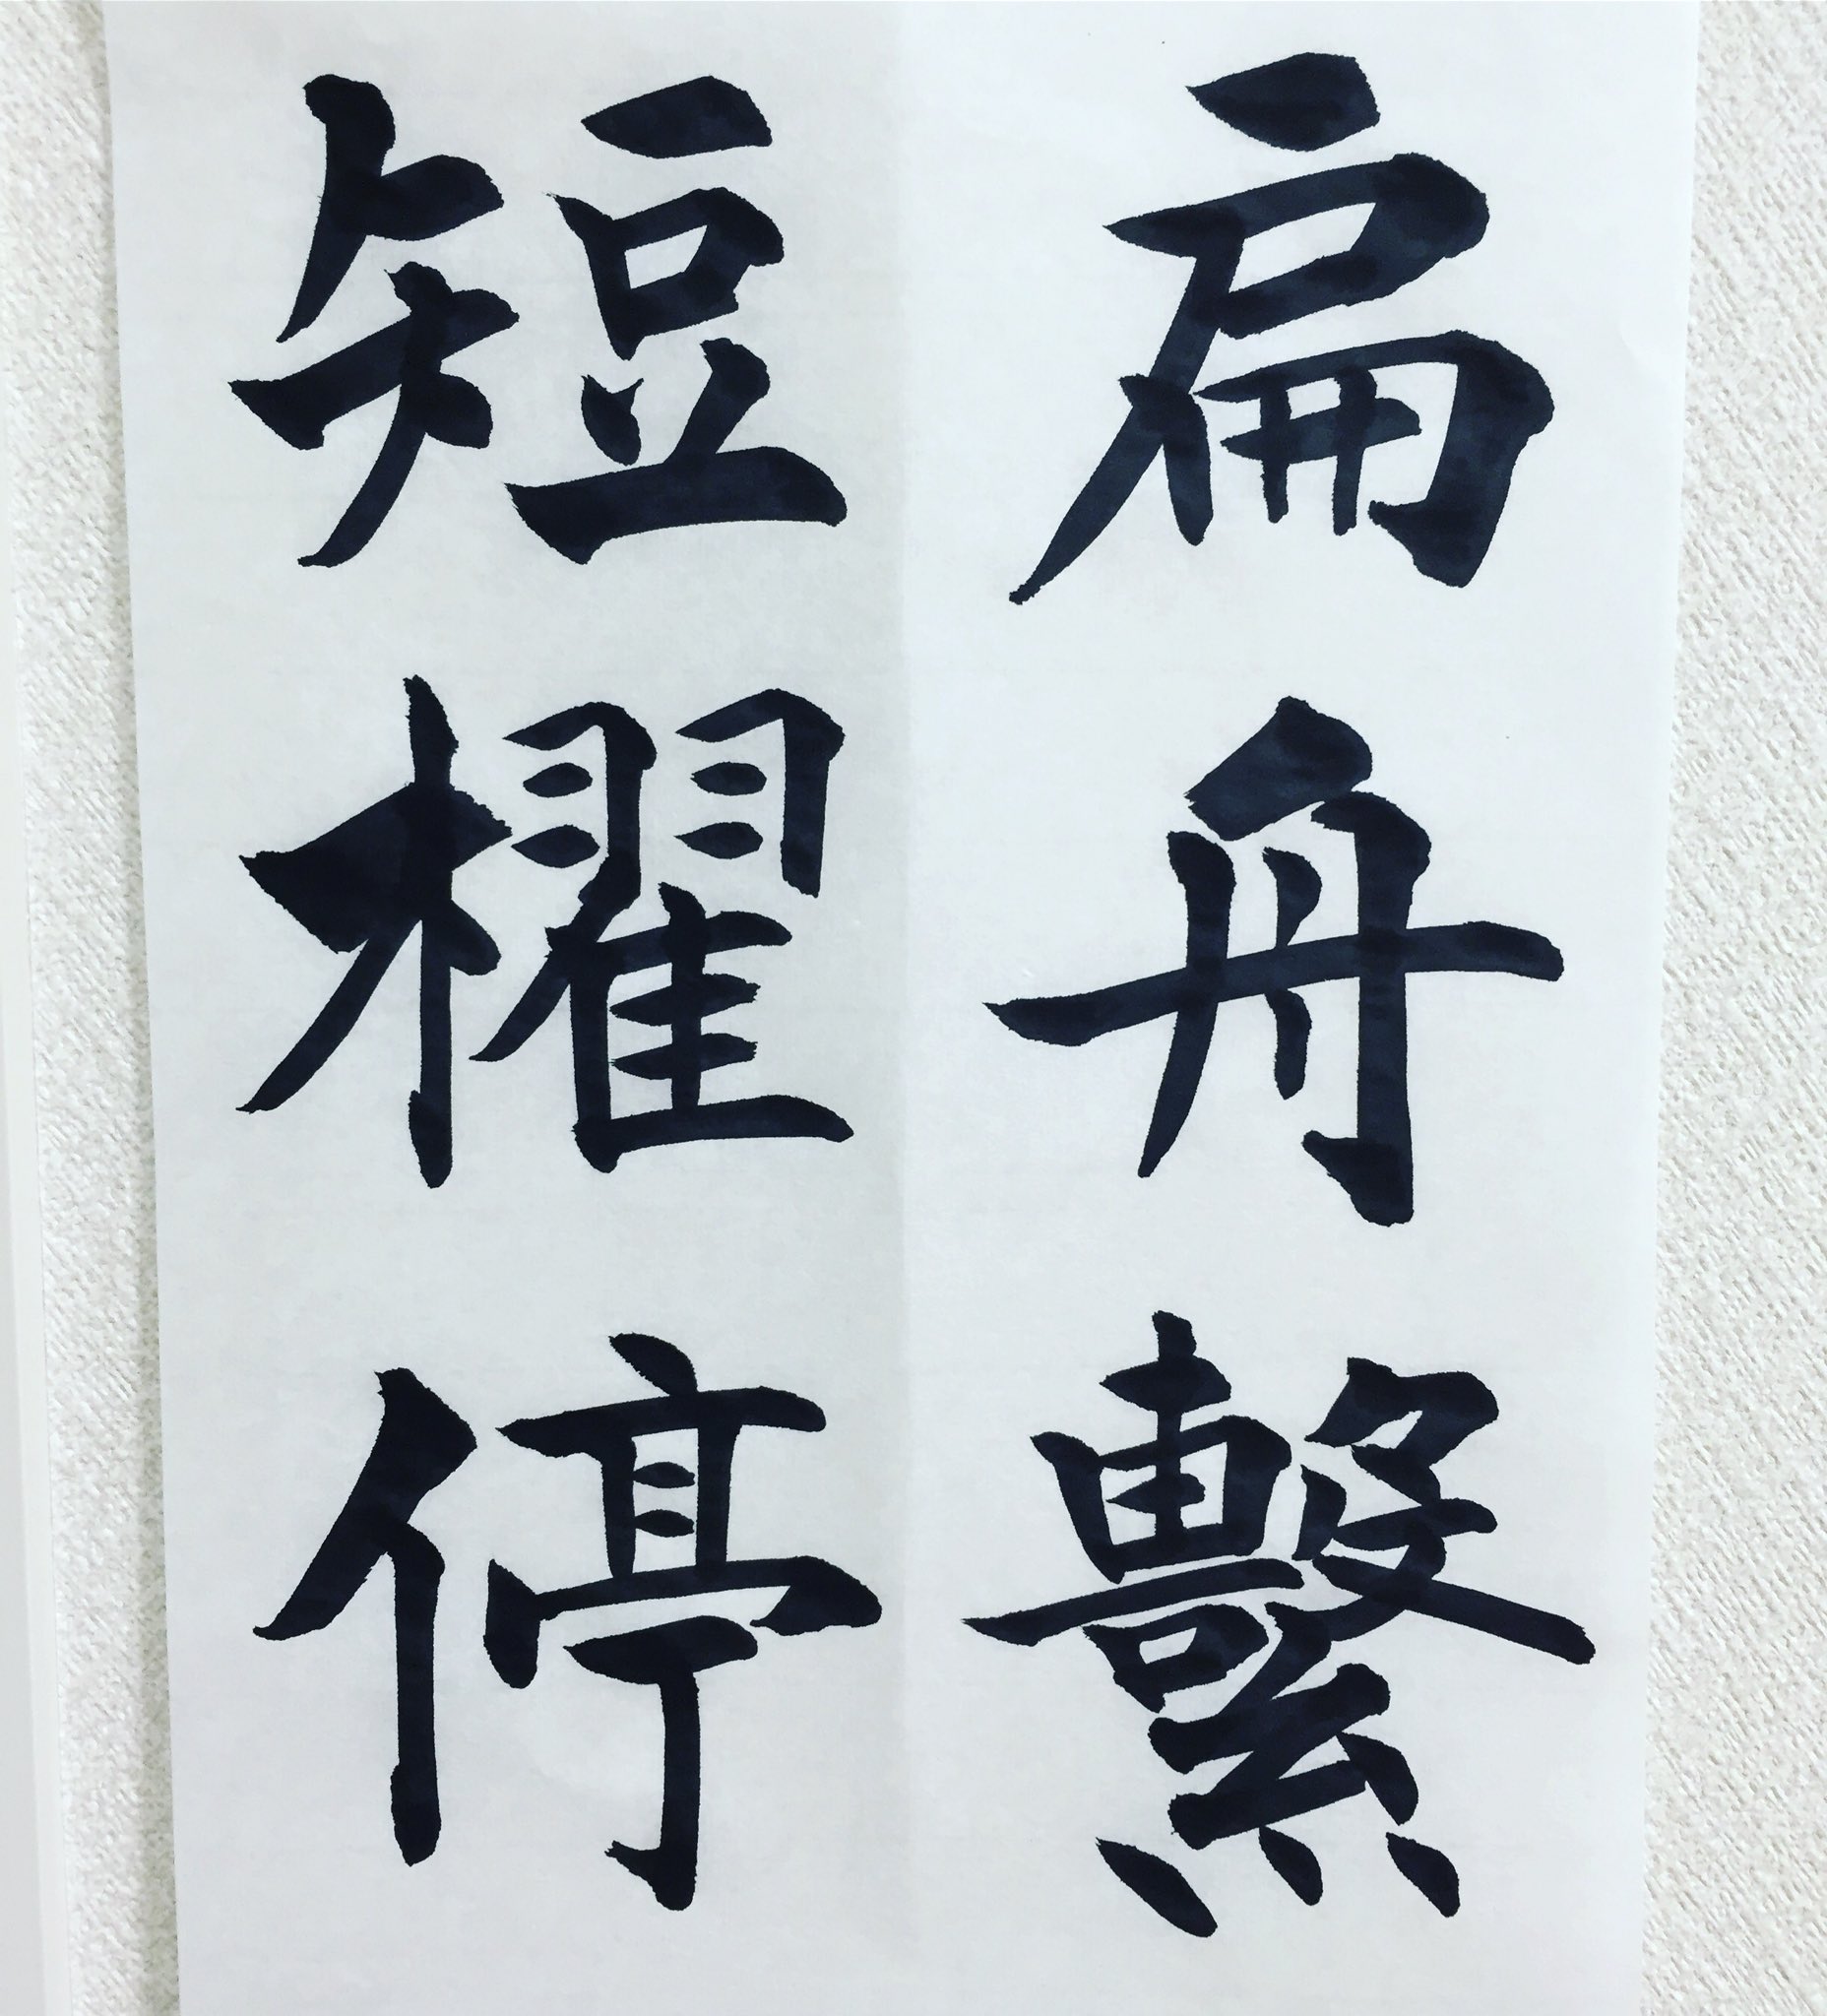 扁舟繫
短櫂停